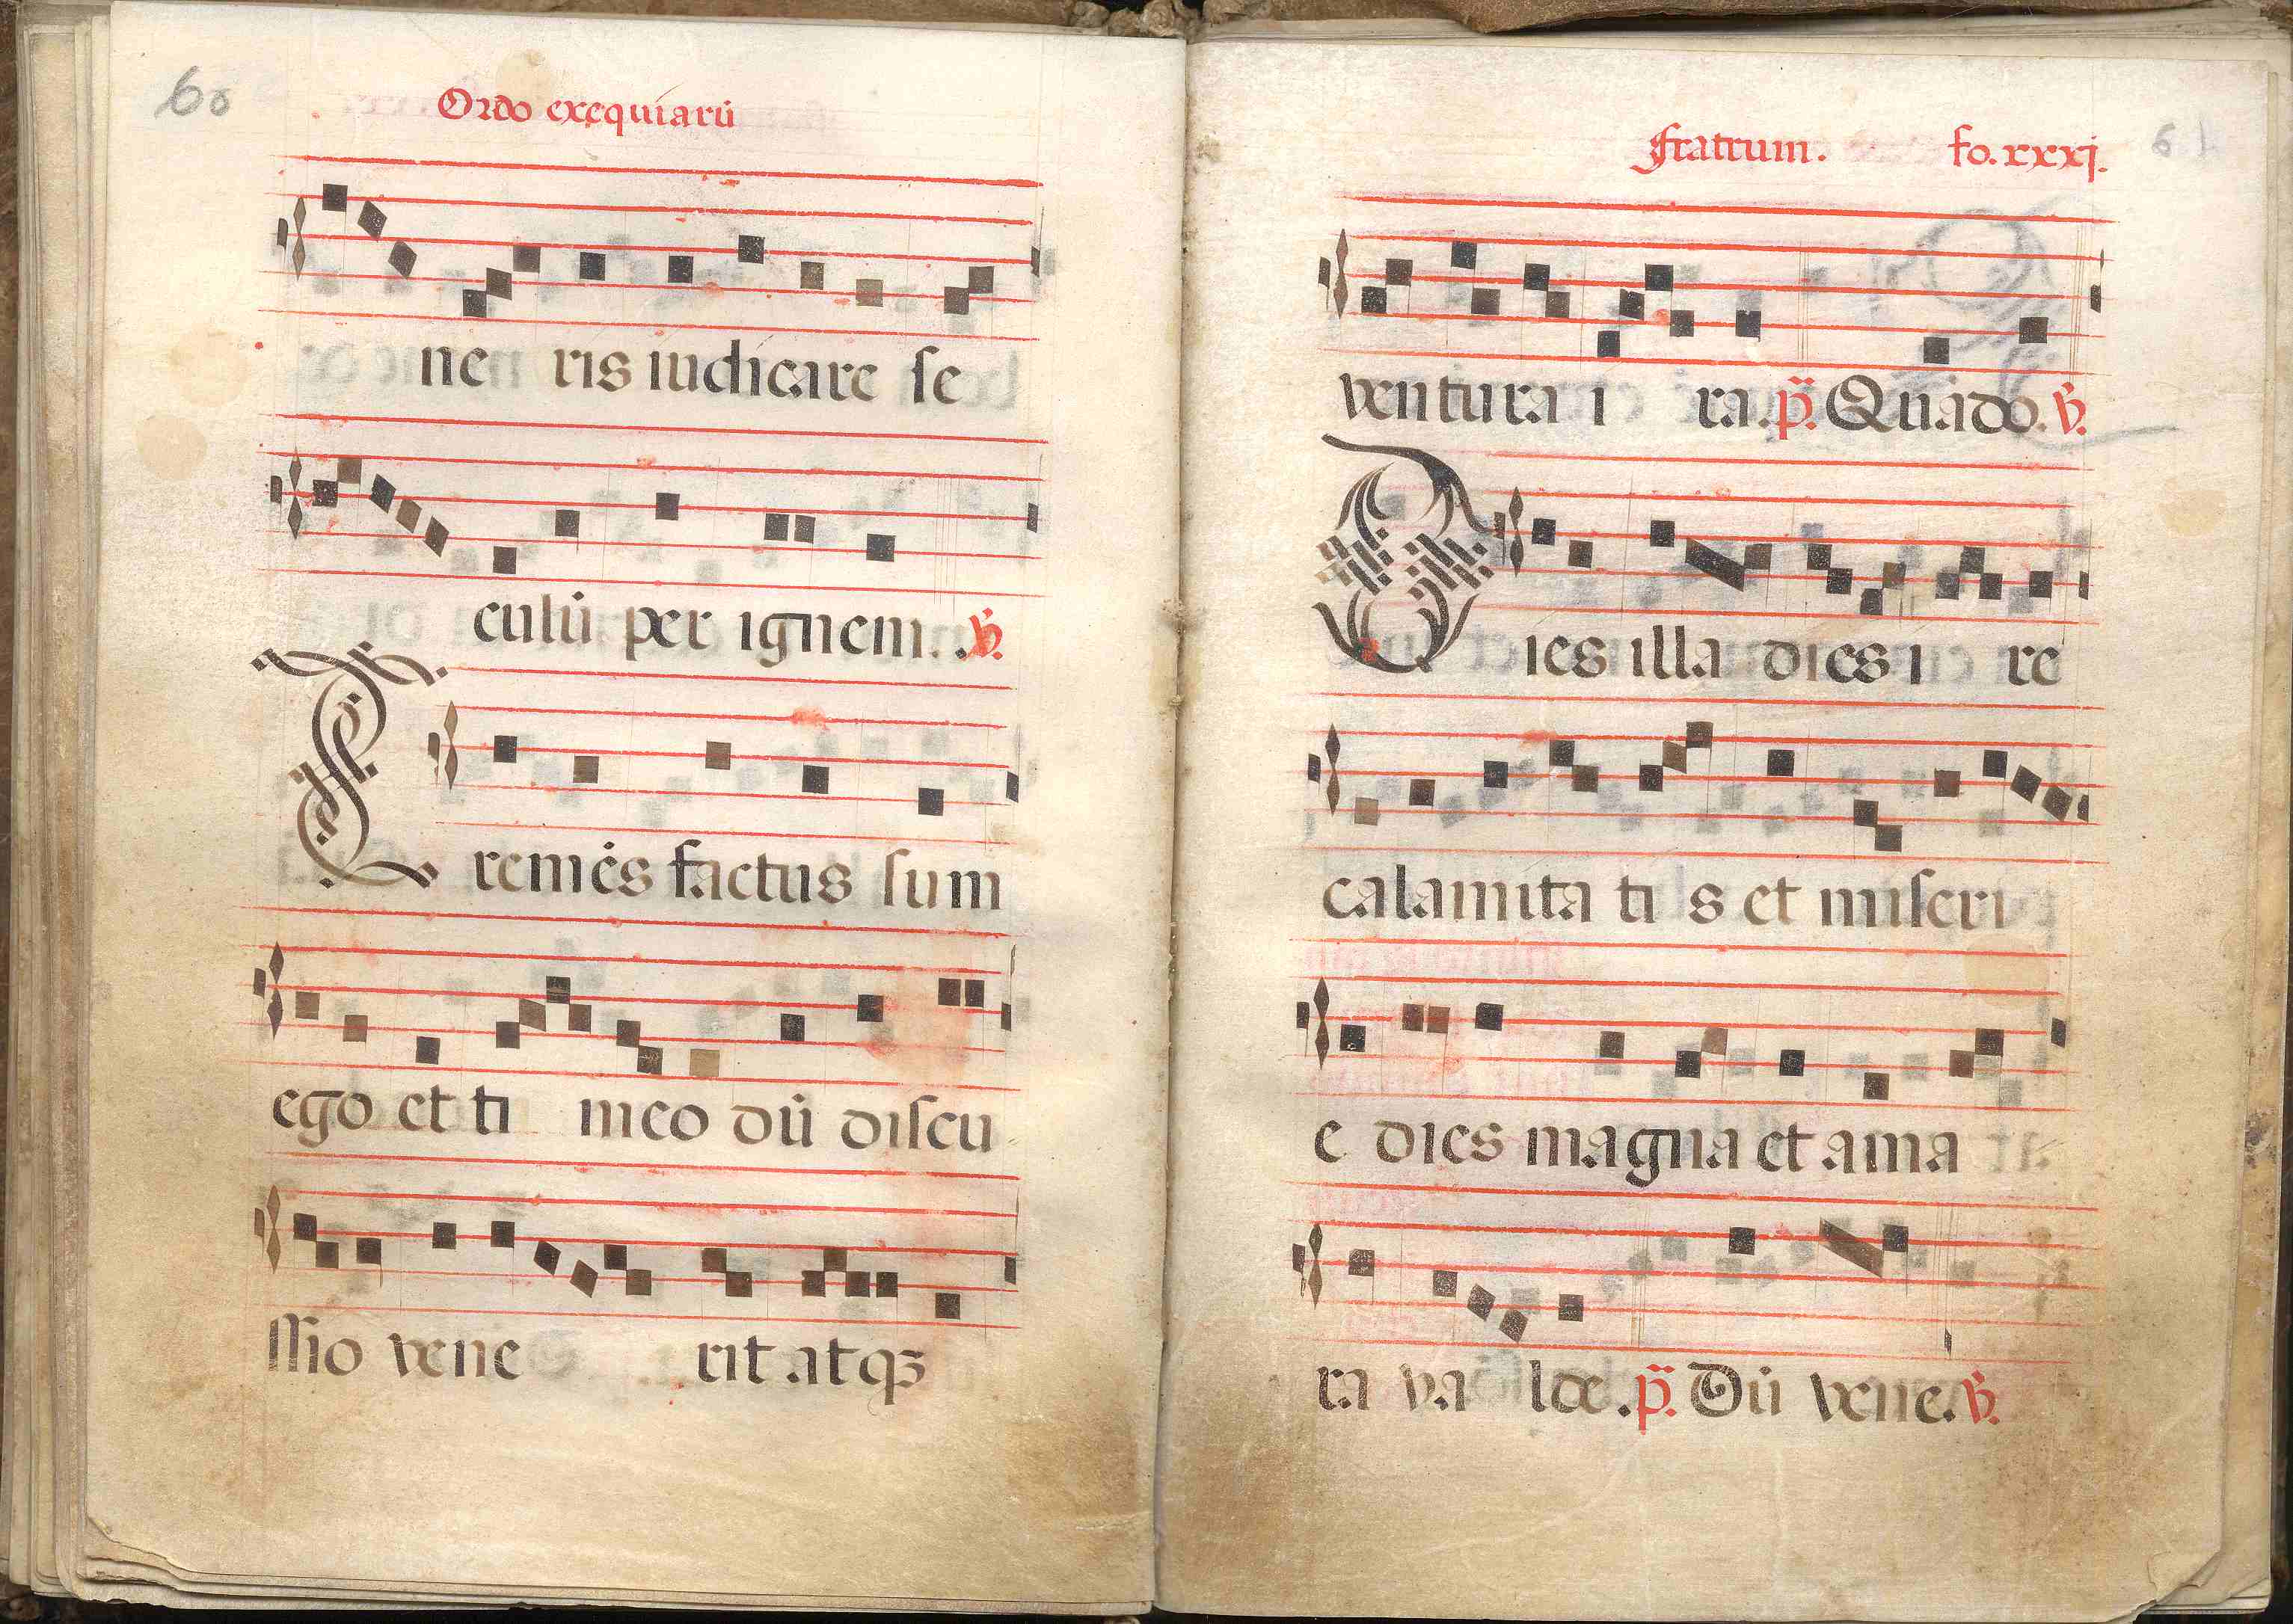 60
Ordo exequiarū
ne ris iudicare ſe
culū per ignem. ℣.
Tremēs factus ſum
ego et ti meo dū diſcu
ſſio vene rit atqꝫ
Fratrum. fo. xxxj.
61
ventura i ra. p̈. Quādo. ℣.
Dies illa dies i re
calamita ti s et miſeri
e dies magna et ama
ra va lde. p̈. Dū vene. ℣.